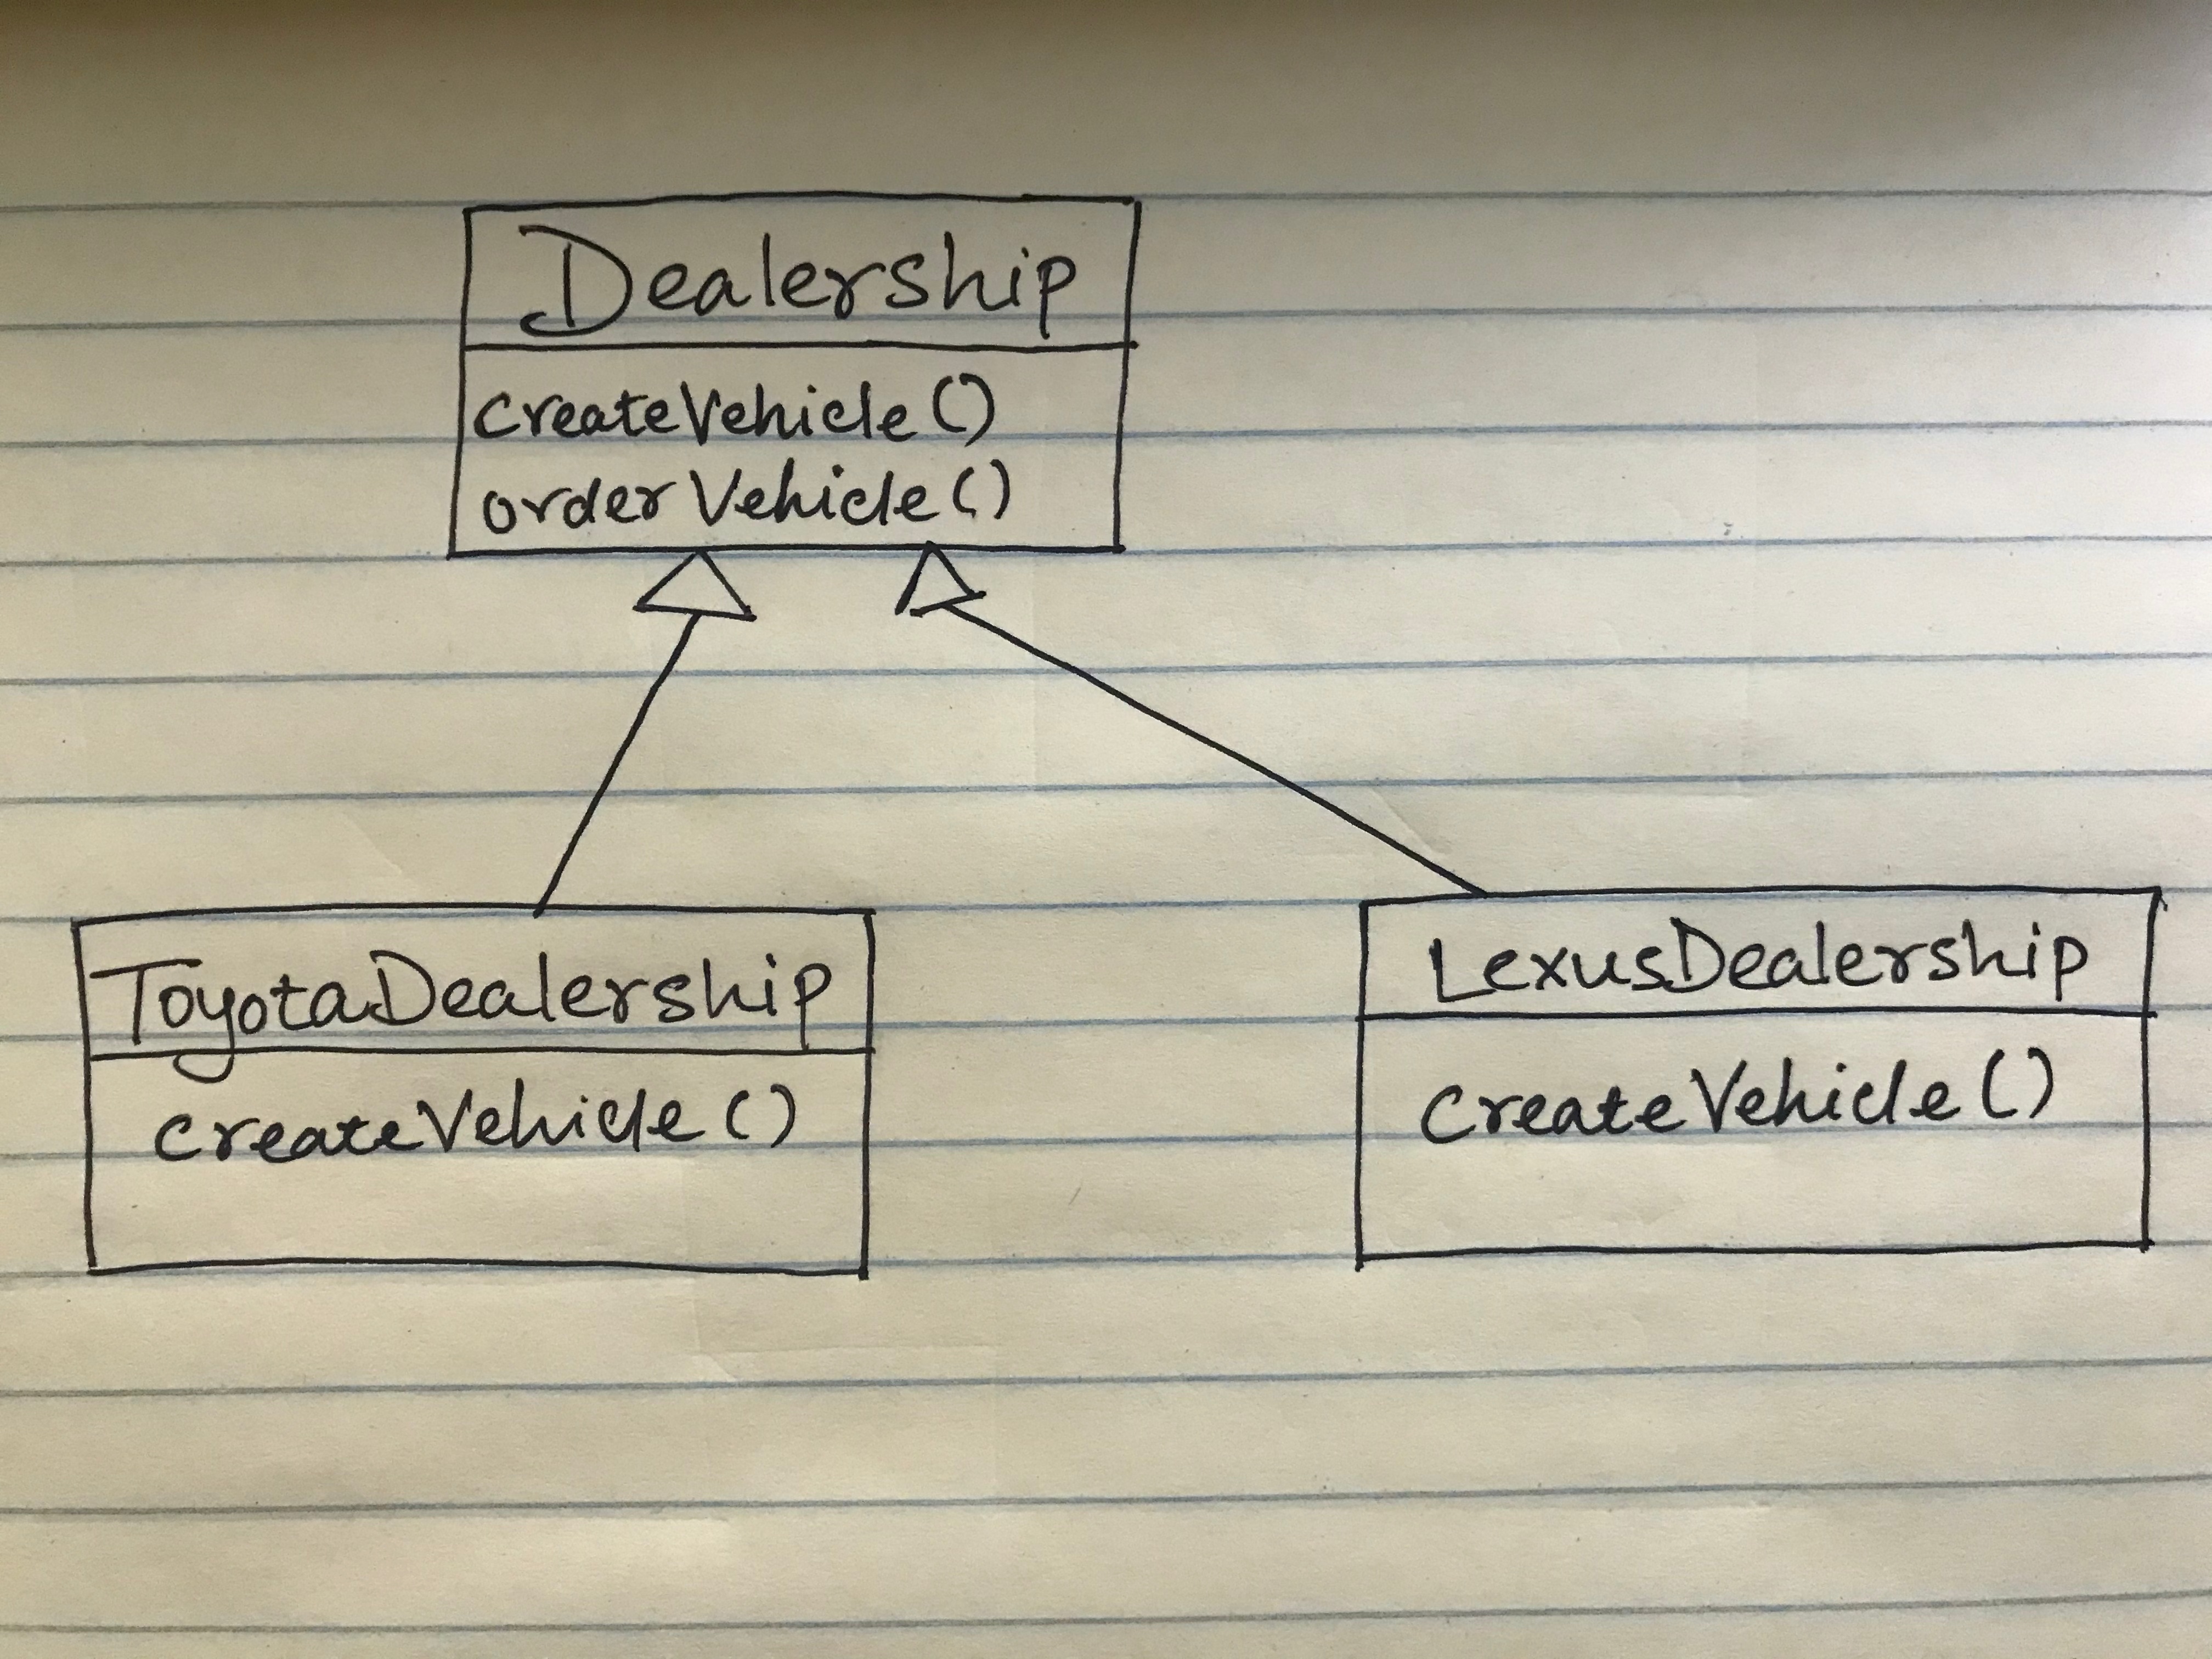 Dealership
createVehicle()
orderVehicle()
ToyotaDealership
createVehicle()
LexusDealership
createVehicle()